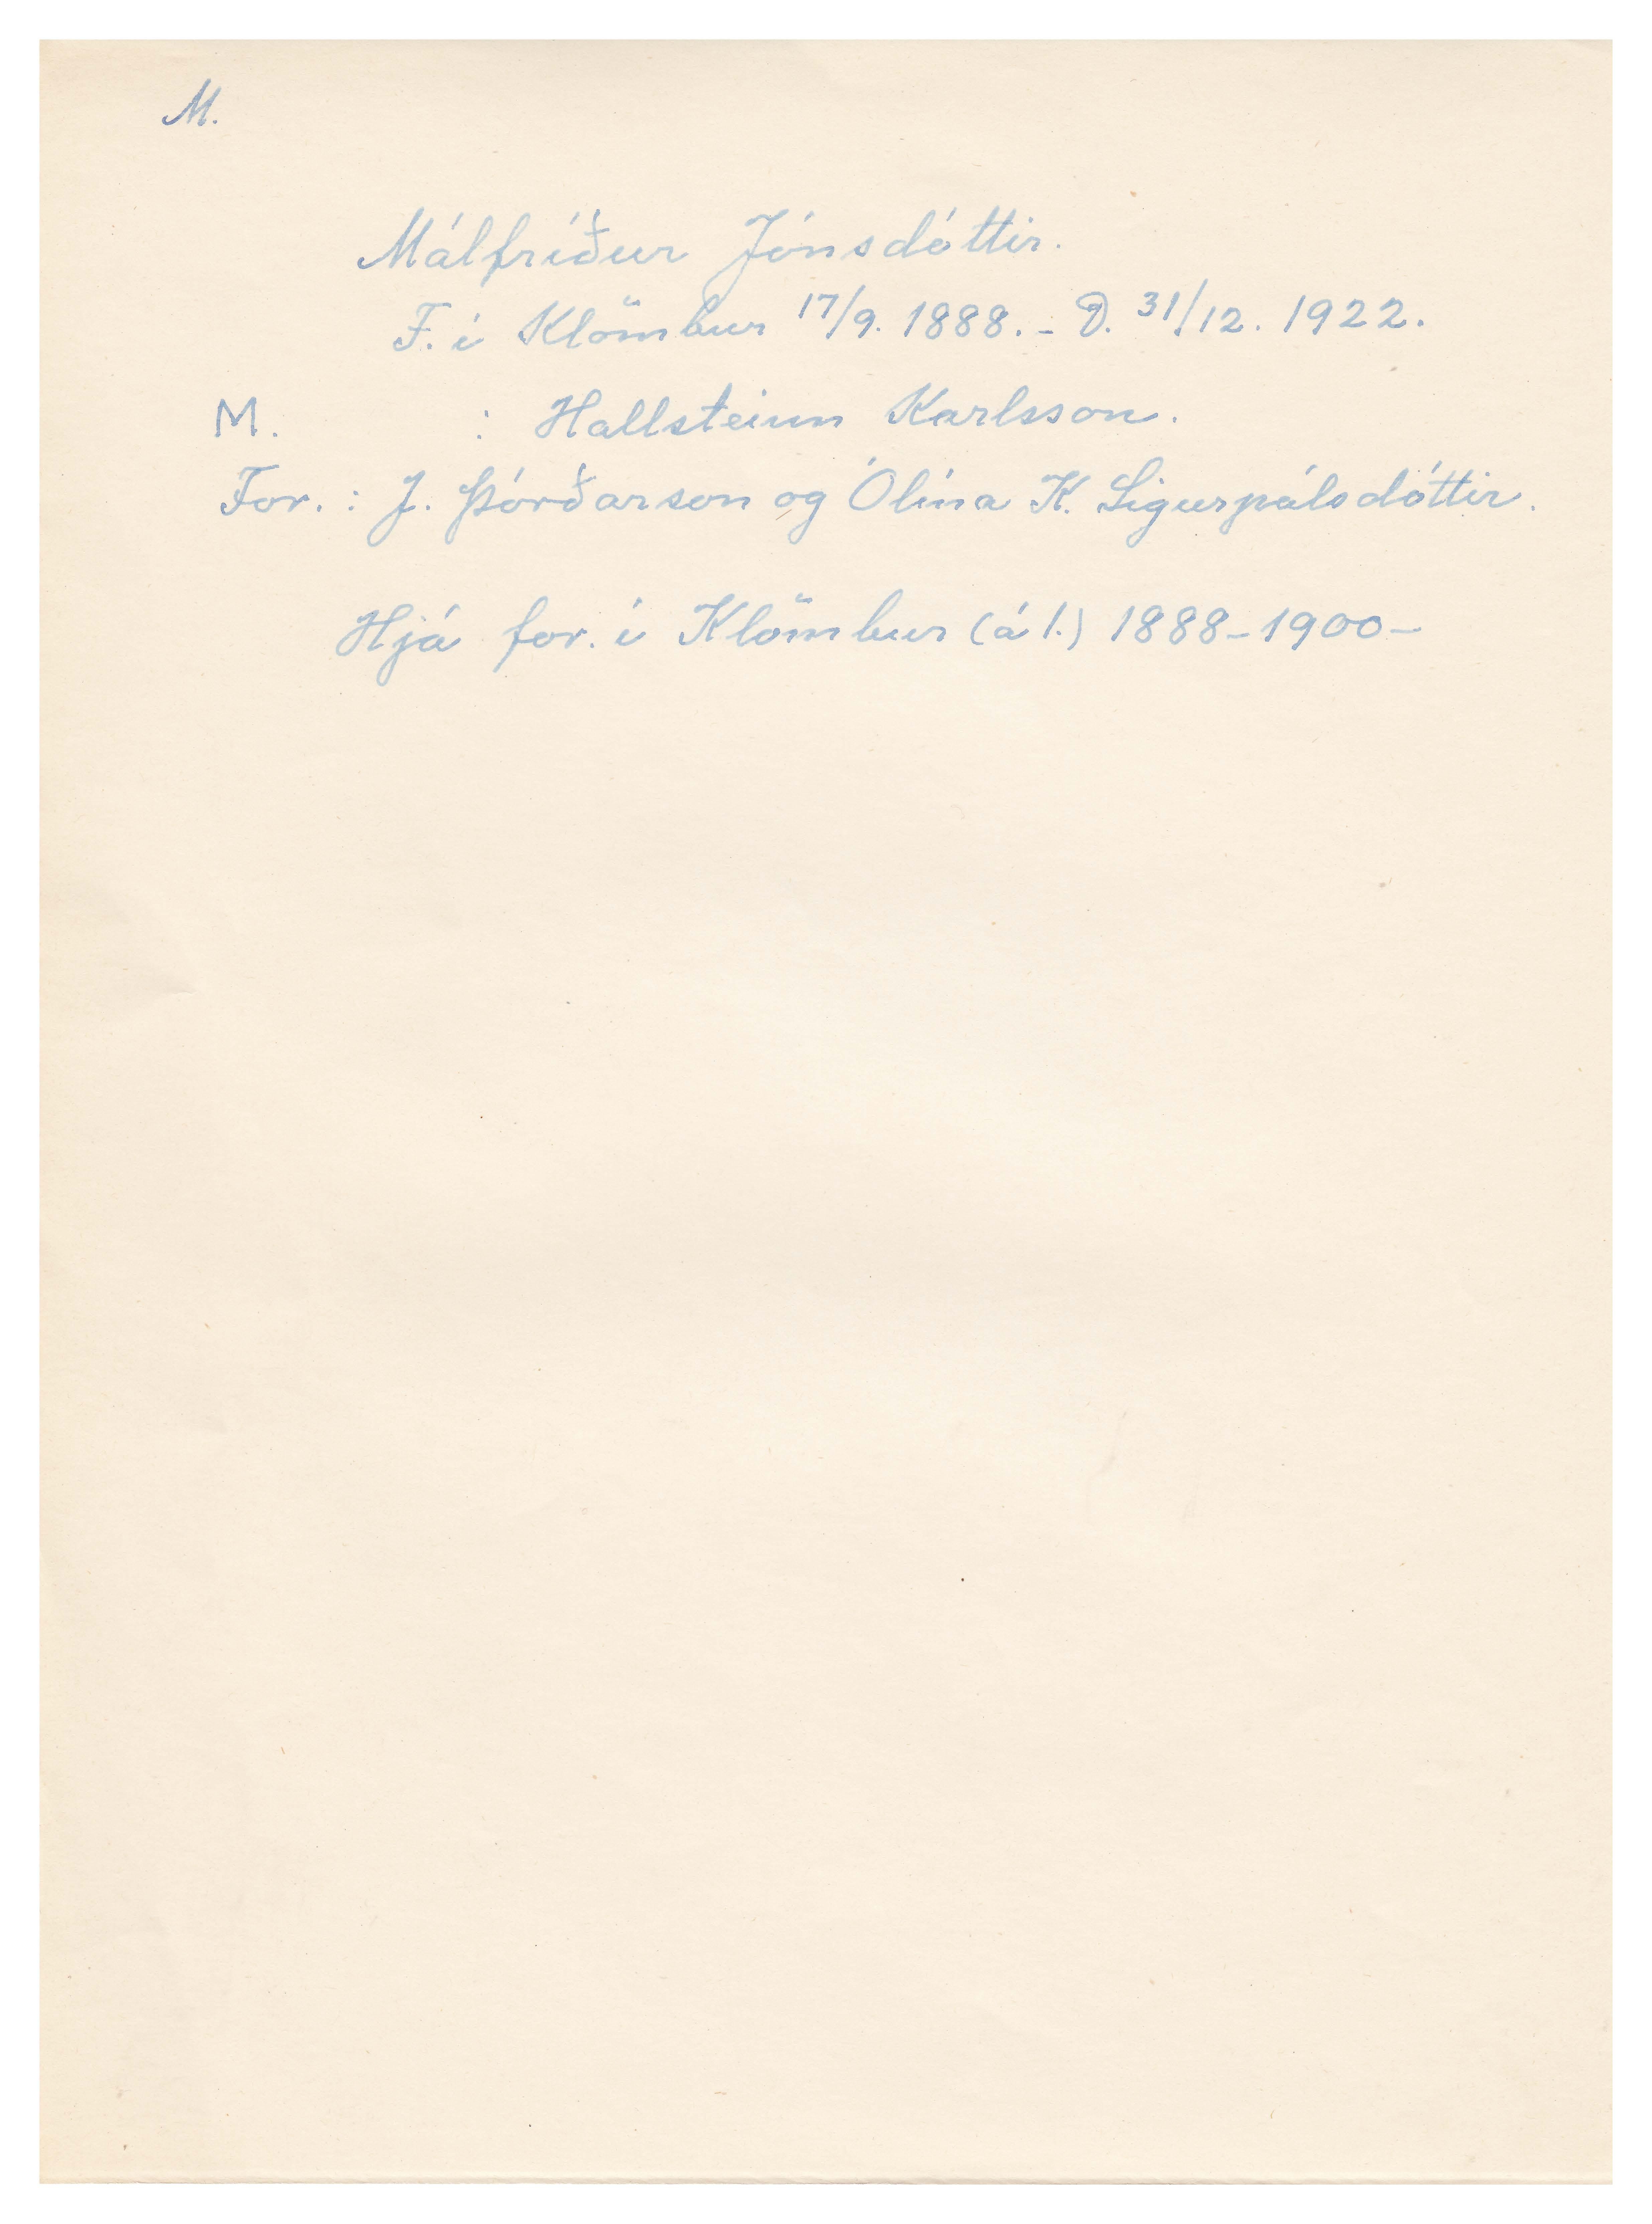 M.
Málfríður Jónsdóttir.
F. í Klömbur 17/9. 1888. - D. 31/12. 1922.
M. : Hallsteinn Karlsson.
For. : J. Þórðarson og Ólína K. Sigurpálsdóttir.
Hjá for. í Klömbur (á 1.) 1888-1900-